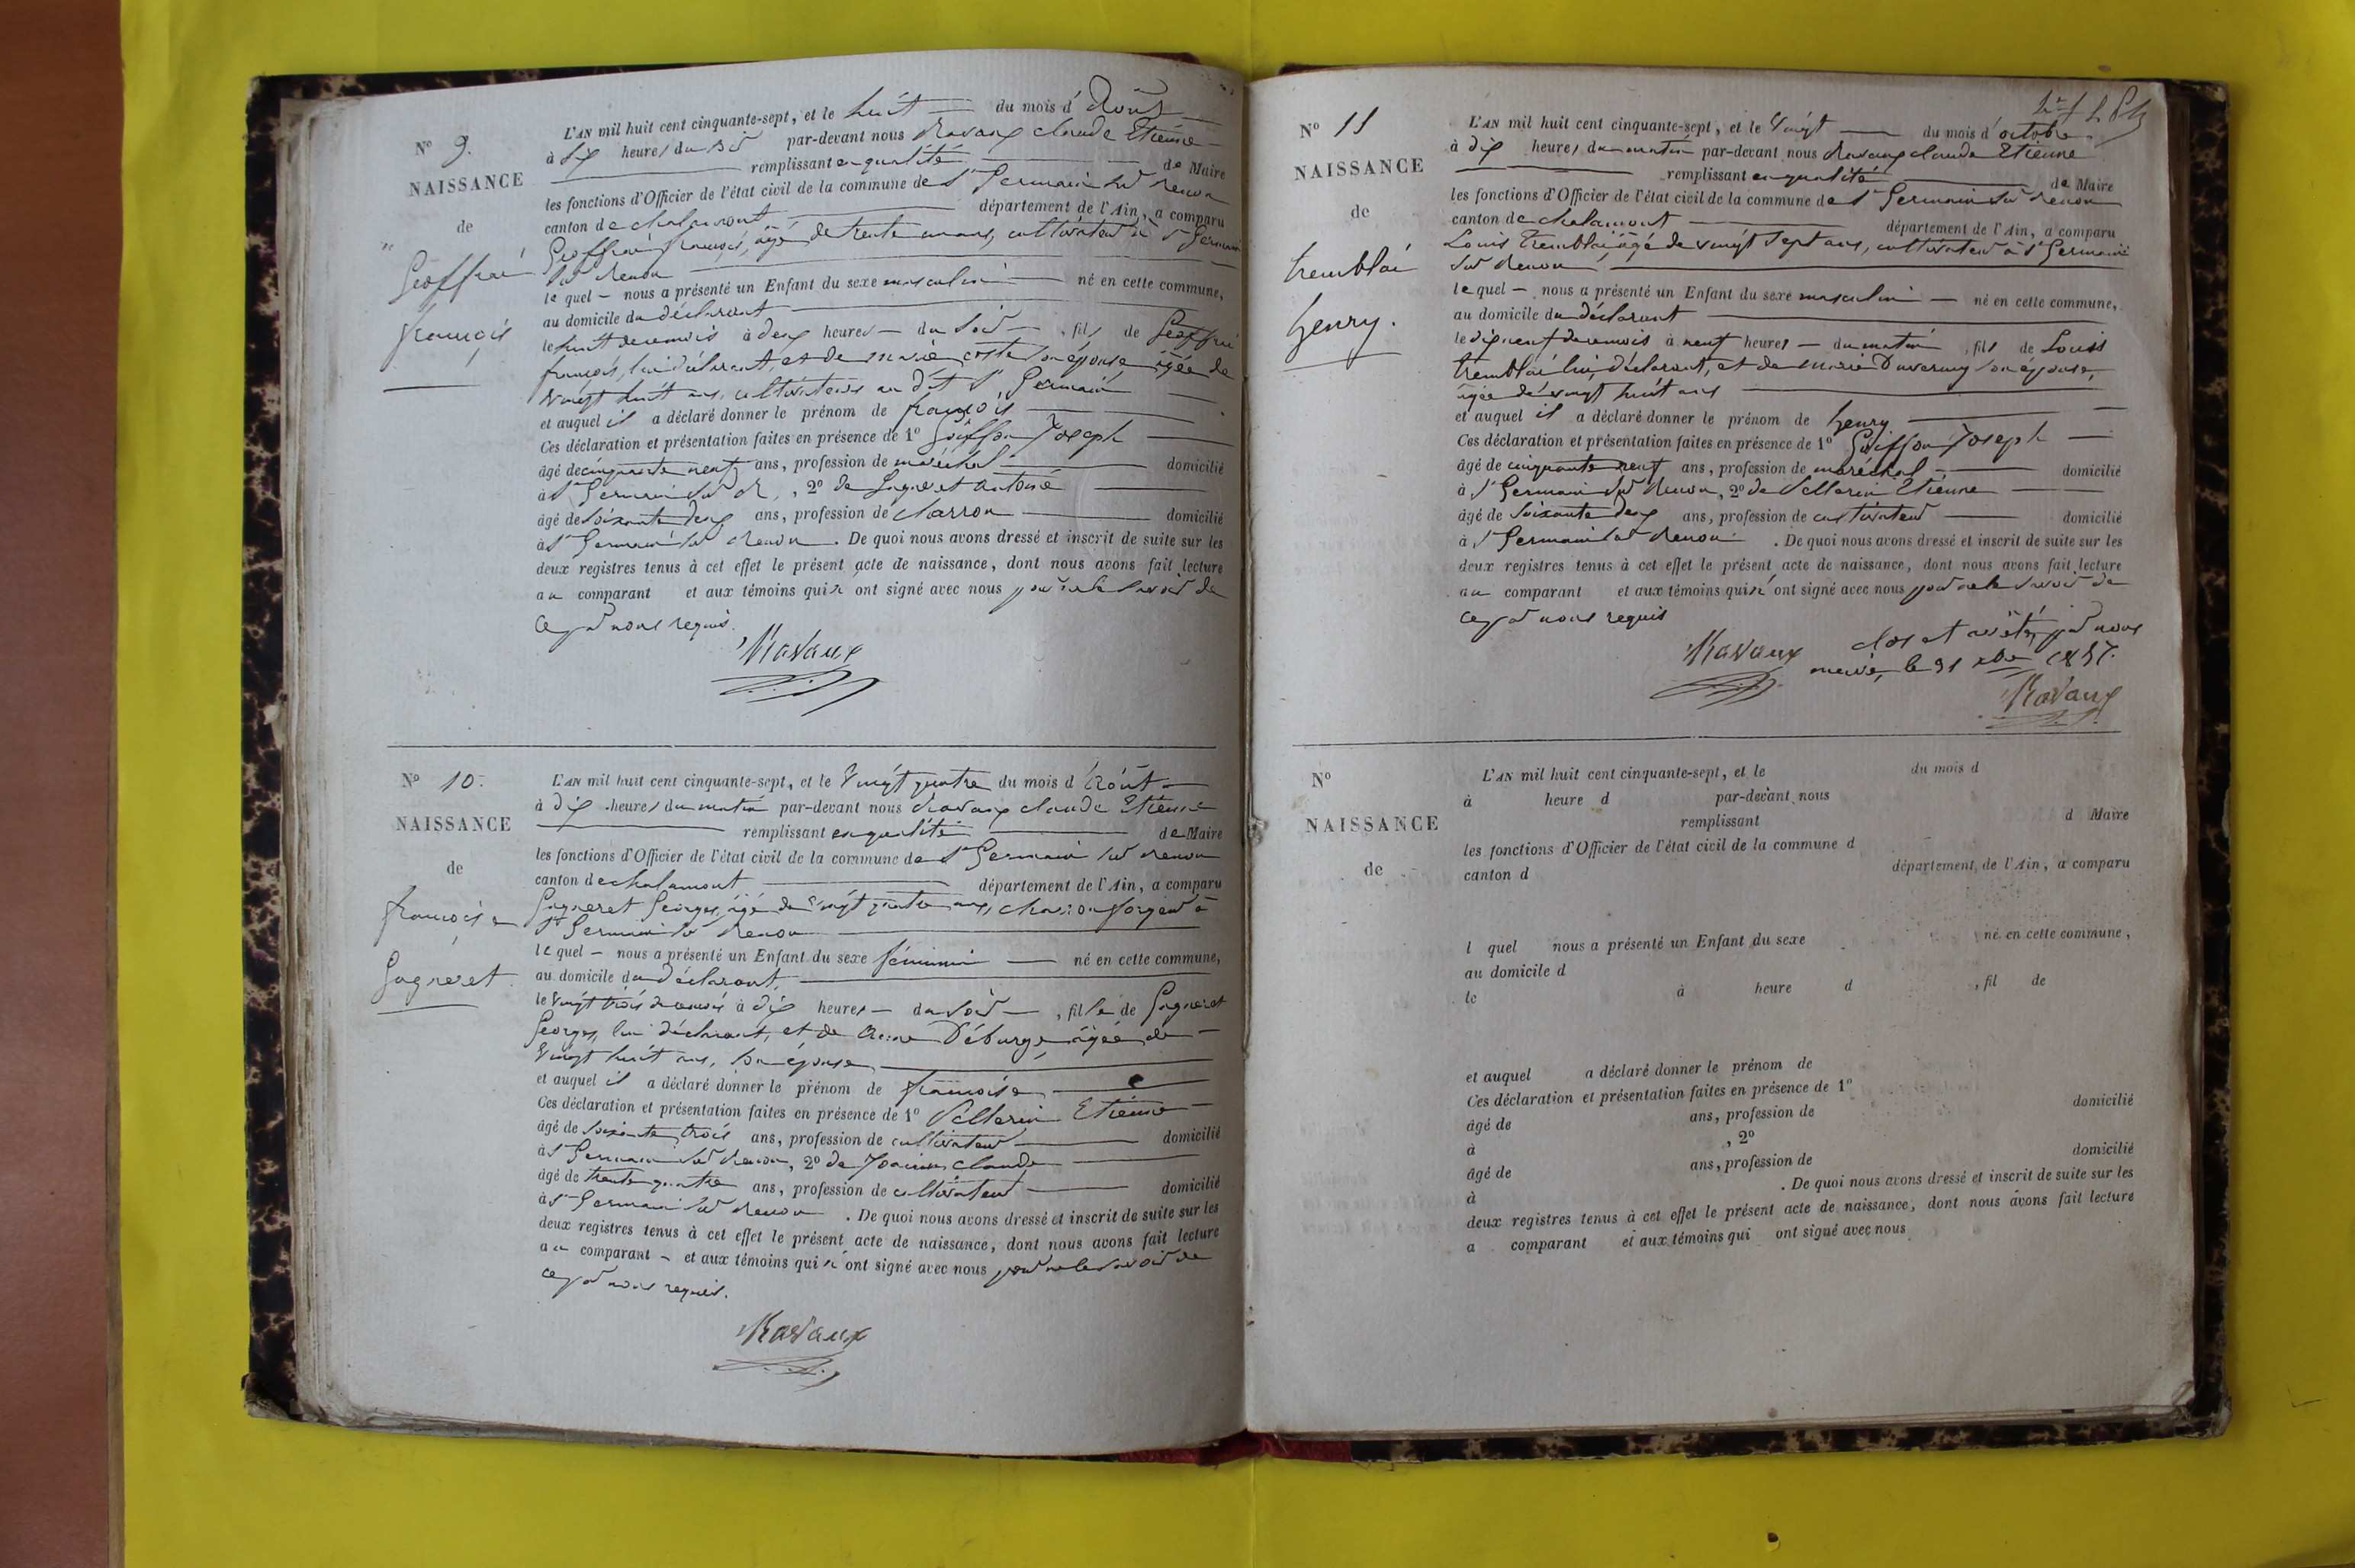 N° 9.
NAISSANCE
de
Geoffrai
françois
L'AN mil huit cent cinquante-sept, et le huit du mois d'Août
à six heures du soir par-devant nous Ravaux claude Etienne
remplissant en qualité de Maire
les fonctions d'Officier de l'état civil de la commune de St Germain sur renon
canton de chalamont département de l'Ain, a comparu
Geoffrai françois, âgé de trente un ans, cultivateur à St Germain
sur Renon
lequel nous a présenté un Enfant du sexe masculin né en cette commune,
au domicile du déclarant
le huit du mois à deux heures du soir, fils de Geoffrai
françois, lui déclarant, et de marie coste son épouse, âgée de
vingt huit ans, cultivateurs au dit St Germain
et auquel il a déclaré donner le prénom de françois
Ces déclaration et présentation faites en présence de 1° Goiffon Joseph
âgé de cinquante neuf ans, profession de maréchal domicilié
à St Germain sur R, 2° de Gagneret antoine
âgé de soixante deux ans, profession de charron domicilié
à St Germain sur Renon. De quoi nous avons dressé et inscrit de suite sur les
deux registres tenus à cet effet le présent acte de naissance, dont nous avons fait lecture
au comparant et aux témoins qui n'ont signé avec nous pour ne le savoir de
ce par nous requis.
Ravaux
N° 10.
NAISSANCE
de
françoise
Gagneret
L'AN mil huit cent cinquante-sept, et le Vingt quatre du mois d'Août
à dix heures du matin par-devant nous Ravaux claude Etienne
remplissant en qualité de Maire
les fonctions d'Officier de l'état civil de la commune de St Germain sur renon
canton de chalamont département de l'Ain, a comparu
Gagneret Georges, âgé de vingt quatre ans, charron forgeur à
St Germain sur Renon
lequel nous a présenté un Enfant du sexe féminin né en cette commune,
au domicile du déclarant,
le vingt trois du mois à dix heures du soir, fille de Gagneret
Georges, lui déclarant, et de Anne Déburge, âgée de
vingt huit ans, son épouse
et auquel il a déclaré donner le prénom de françoise
Ces déclaration et présentation faites en présence de 1° Pellerin Etienne
âgé de soixante trois ans, profession de cultivateur domicilié
à St Germain sur Renon, 2° de claude
âgé de trente quatre ans, profession de cultivateur domicilié
à St Germain sur Renon. De quoi nous avons dressé et inscrit de suite sur les
deux registres tenus à cet effet le présent acte de naissance, dont nous avons fait lecture
au comparant et aux témoins qui n'ont signé avec nous pour ne le savoir de
ce par nous requis.
Ravaux
N° 11
NAISSANCE
de
tremblai
henry.
L'AN mil huit cent cinquante-sept, et le Vingt du mois d'octobre
à dix heures du matin par-devant nous Ravaux claude Etienne
remplissant en qualité de Maire
les fonctions d'Officier de l'état civil de la commune de St Germain sur Renon
canton de chalamont département de l'Ain, a comparu
Louis tremblai, âgé de vingt sept ans, cultivateur à St Germain
sur Renon
lequel nous a présenté un Enfant du sexe masculin né en cette commune,
au domicile du déclarant
le dix neuf du mois à neuf heures du matin, fils de Louis
tremblai lui déclarant, et de marie Duvernay son épouse,
âgée de vingt huit ans
et auquel il a déclaré donner le prénom de henry
Ces déclaration et présentation faites en présence de 1° Goiffon Joseph
âgé de cinquante neuf ans, profession de maréchal domicilié
à St Germain sur Renon, 2° de Pellerin Etienne
âgé de soixante deux ans, profession de cultivateur domicilié
à St Germain sur Renon. De quoi nous avons dressé et inscrit de suite sur les
deux registres tenus à cet effet le présent acte de naissance, dont nous avons fait lecture
au comparant et aux témoins qui n'ont signé avec nous pour ne le savoir de
ce par nous requis
Ravaux
clos et arrêté par nous
maire, le 31 xbre 1857.
Ravaux
N°
NAISSANCE
de
L'AN mil huit cent cinquante-sept, et le du mois d
à heure d par-devant nous
remplissant d Maire
les fonctions d'Officier de l'état civil de la commune d
canton d département de l'Ain, a comparu
l quel nous a présenté un Enfant du sexe né en cette commune,
au domicile d
le à heure d , fil de
et auquel a déclaré donner le prénom de
Ces déclaration et présentation faites en présence de 1°
âgé de ans, profession de domicilié
à , 2°
âgé de ans, profession de domicilié
à . De quoi nous avons dressé et inscrit de suite sur les
deux registres tenus à cet effet le présent acte de naissance, dont nous avons fait lecture
a comparant et aux témoins qui ont signé avec nous